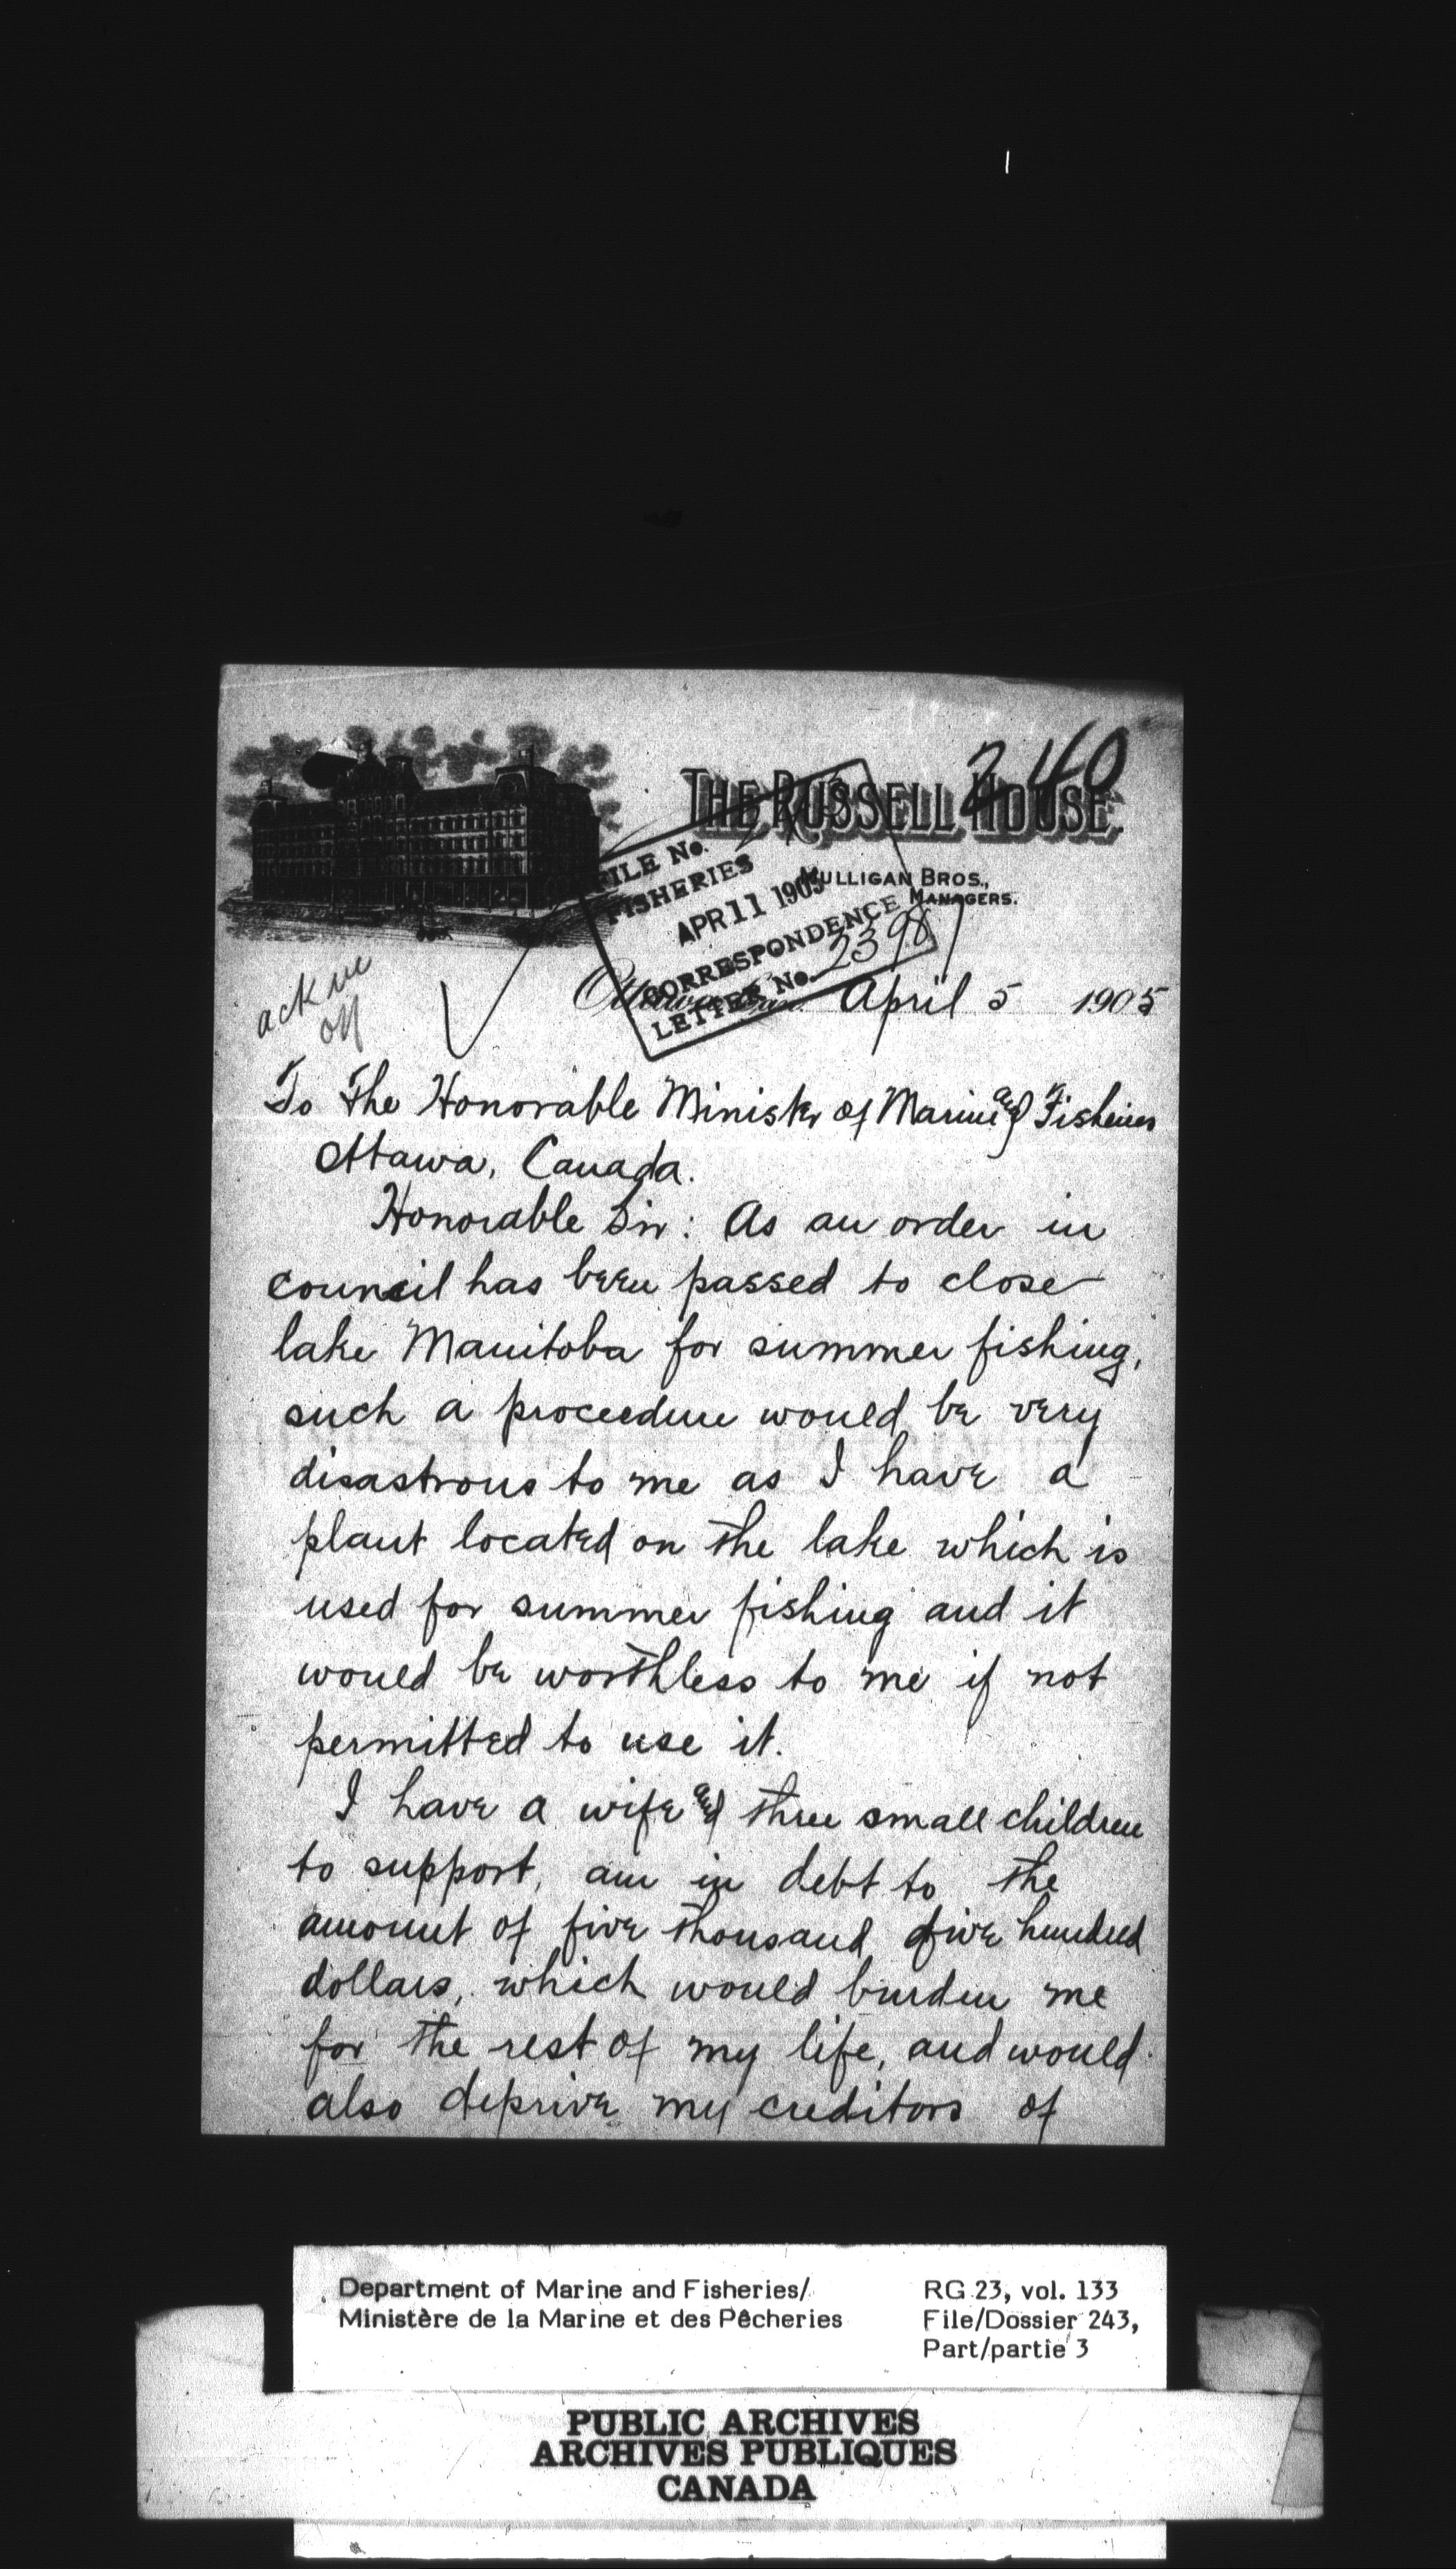 240
THE RUSSELL HOUSE.
MULLIGAN BROS.,
MANAGERS.
FILE No.
FISHERIES
APR 11 1905
CORRESPONDENCE
LETTER No. 2398
Ottawa, Can. April 5 1905
To The Honorable Minister of Marine and Fisheries
Ottawa, Canada.
Honorable Sir: As an order in
council has been passed to close
lake Manitoba for summer fishing,
such a proceedure would be very
disastrous to me as I have a
plant located on the lake which is
used for summer fishing and it
would be worthless to me if not
permitted to use it.
I have a wife and three small children
to support, am in debt to the
amount of five thousand five hundred
dollars, which would burden me
for the rest of my life, and would
also deprive my creditors of
Department of Marine and Fisheries/
Ministère de la Marine et des Pêcheries
RG 23, vol. 133
File/Dossier 243,
Part/partie 3
PUBLIC ARCHIVES
ARCHIVES PUBLIQUES
CANADA